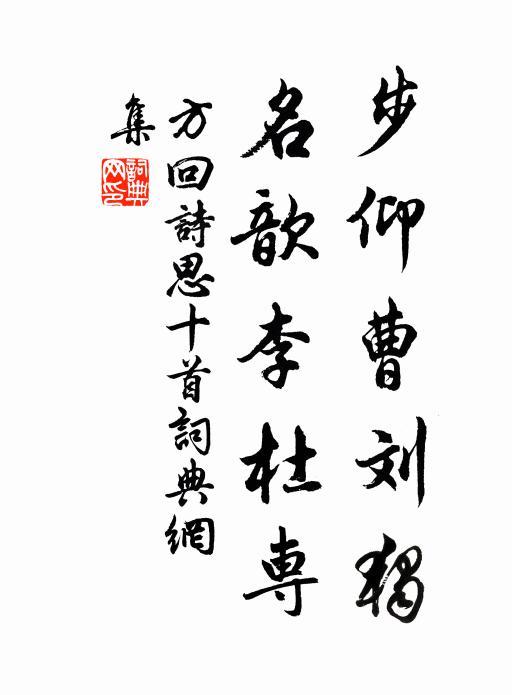 步仰曹刘獨
名歆李杜専
方回詩思十首詞典網
集
詞典
网印